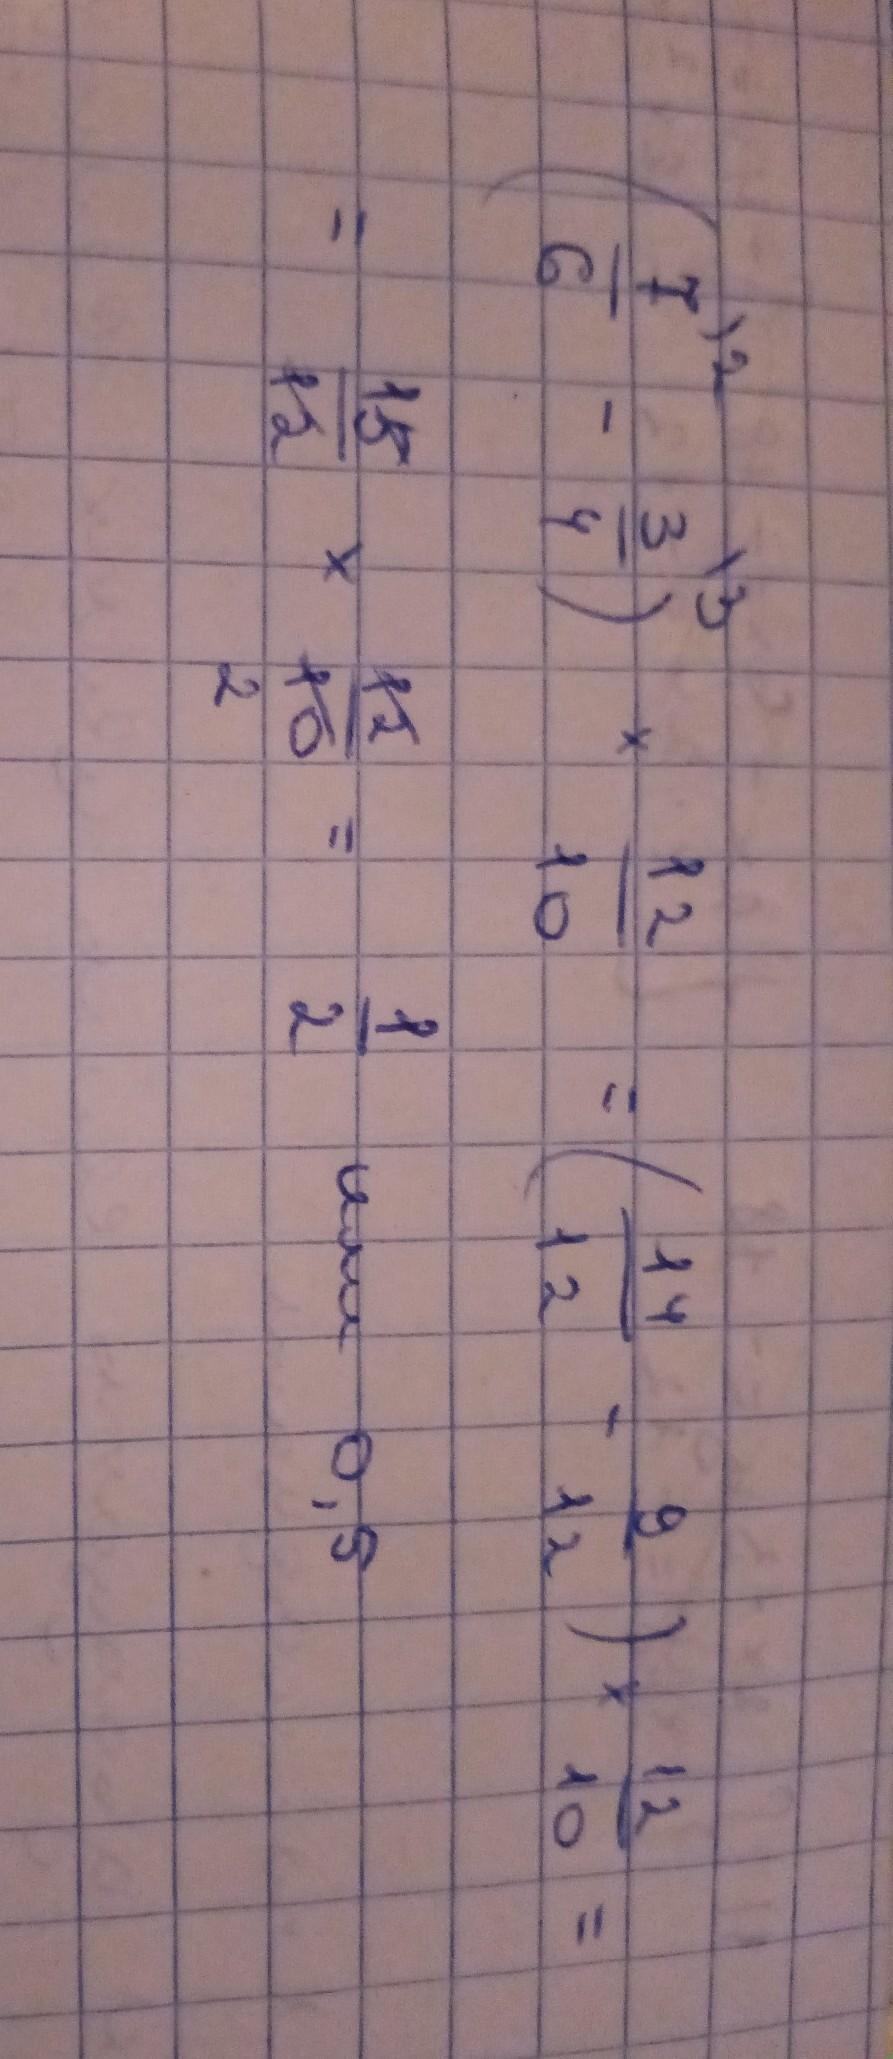 (7/6)² - 3/4)³) × 12/10 = (14/12 - 9/12) × 12/10 =
= 15/12 × 12/10 2 = 1/2 или 0,5